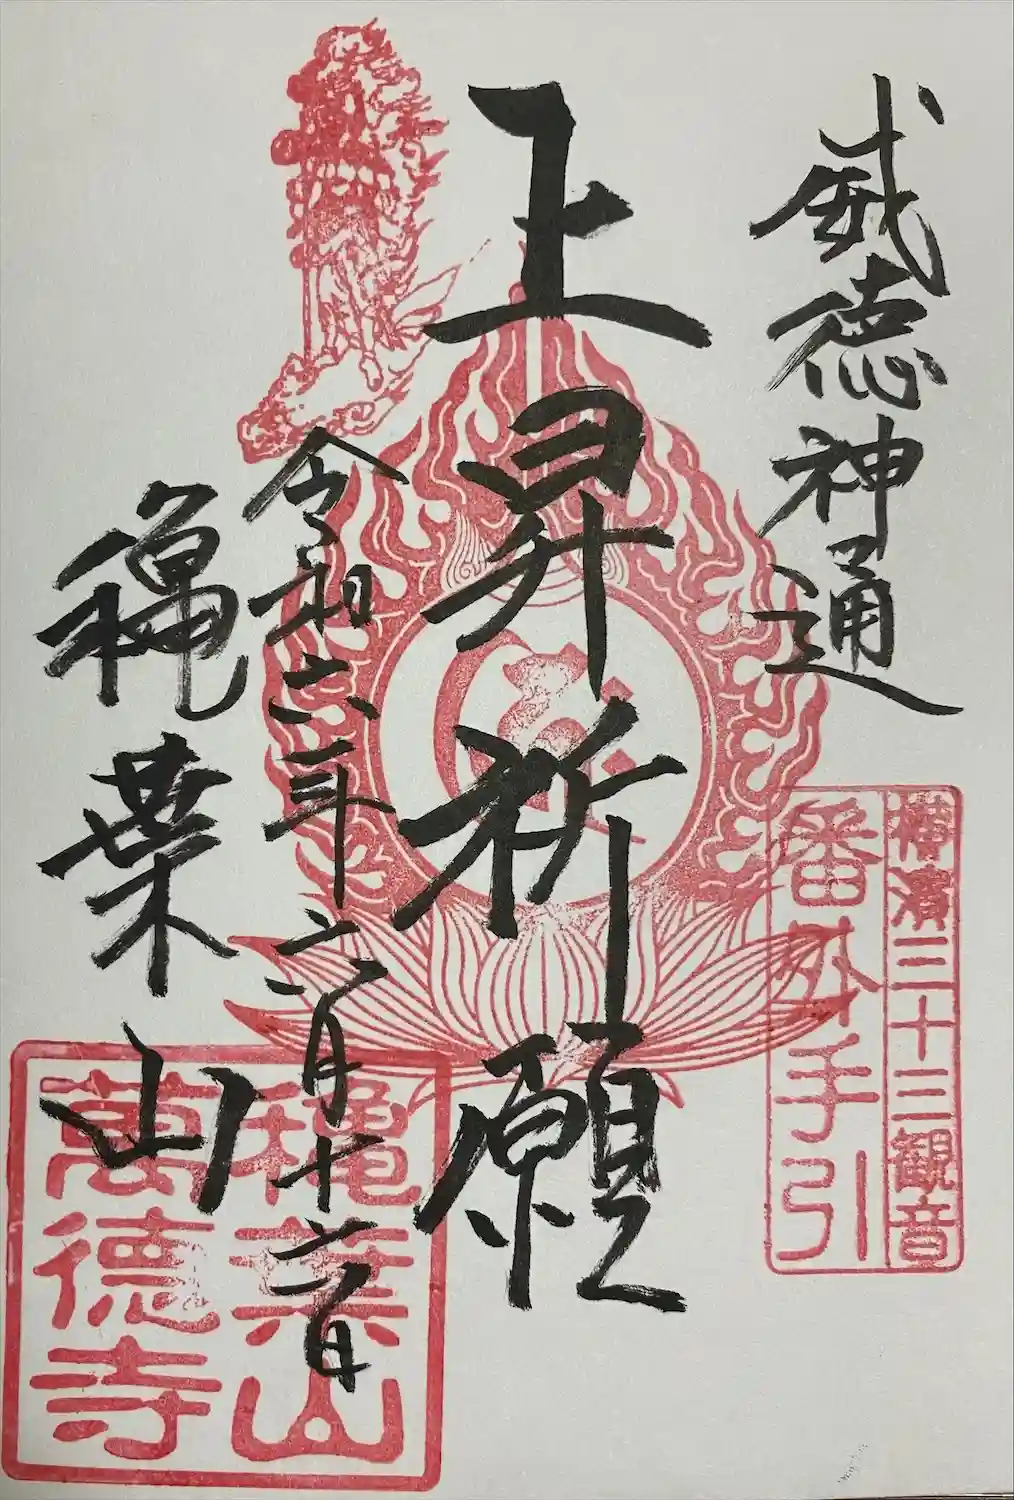 威徳神通
横濱三十三観音
番外手引
上昇祈願
令和六年六月十六日
穐葉山
穐葉山
萬德寺